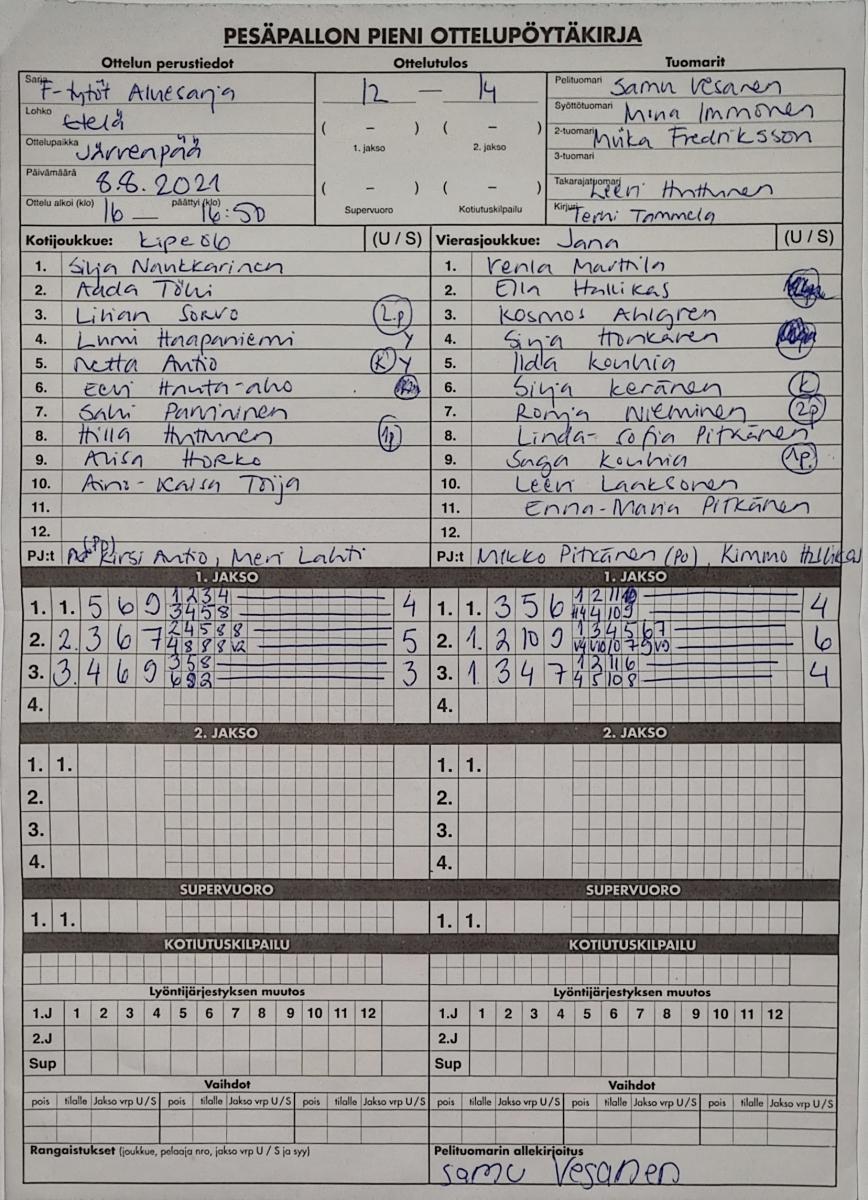 PESÄPALLON PIENI OTTELUPÖYTÄKIRJA
Ottelun perustiedot Ottelutulos Tuomarit
Sarja F-tytöt Aluesarja
Lohko Etelä
Ottelupaikka Järvenpää
Päivämäärä 8.8.2021
Ottelu alkoi (klo) 16 — päättyi (klo) 16:50
12 — 14
( – ) ( – )
1. jakso 2. jakso
( – ) ( – )
Supervuoro Kotiutuskilpailu
Pelituomari Samu Vesanen
Syöttötuomari Mina Immonen
2-tuomari Miika Fredriksson
3-tuomari
Takarajatuomari Eeri Huttunen
Kirjuri Terhi Tammela
Kotijoukkue: Kipeöö (U / S)
1. Silja Nankkarinen
2. Aada Töhi
3. Lilian Sorvo 2.p
4. Lumi Haapaniemi Y
5. Netta Antio K Y
6. Eevi Hauta-aho
7. Salli Parvininen
8. Hilla Huttunen 1p
9. Alisa Horko
10. Aino-Kaisa Toija
11.
12.
PJ:t (PP) Kirsi Antio, Meri Lahti
Vierasjoukkue: Jana (U / S)
1. Venla Marttila
2. Ella Hallikas
3. Kosmos Ahlgren
4. Sinja Honkanen
5. Ilda Kouhia
6. Silja Keränen K
7. Ronja Nieminen 2p
8. Linda-Sofia Pitkänen
9. Saga Kouhia 1p.
10. Leeri Laaksonen
11. Enna-Maria Pitkänen
12.
PJ:t Mikko Pitkänen (PO), Kimmo Hallikas
1. JAKSO
1. 1. 5 6 9 1 2 3 4 4
3 4 5 8
2. 2. 3 6 7 2 4 5 8 8 5
4 8 8 8 V2
3. 3. 4 6 9 3 5 8 3
6 9 2
4.
1. JAKSO
1. 1. 3 5 6 1 2 11 4
4 10 9
2. 1. 2 10 9 1 3 4 5 6 7 6
3. 1 3 4 7 1 2 11 6 4
4 5 10 8
4.
2. JAKSO
1. 1.
2.
3.
4.
2. JAKSO
1. 1.
2.
3.
4.
SUPERVUORO
1. 1.
SUPERVUORO
1. 1.
KOTIUTUSKILPAILU
KOTIUTUSKILPAILU
Lyöntijärjestyksen muutos
1.J 1 2 3 4 5 6 7 8 9 10 11 12
2.J
Sup
Lyöntijärjestyksen muutos
1.J 1 2 3 4 5 6 7 8 9 10 11 12
2.J
Sup
Vaihdot
pois tilalle Jakso vrp U / S pois tilalle Jakso vrp U / S pois tilalle Jakso vrp U / S
Vaihdot
pois tilalle Jakso vrp U / S pois tilalle Jakso vrp U / S pois tilalle Jakso vrp U / S
Rangaistukset (joukkue, pelaaja nro, jakso vrp U / S ja syy)
Pelituomarin allekirjoitus
Samu Vesanen